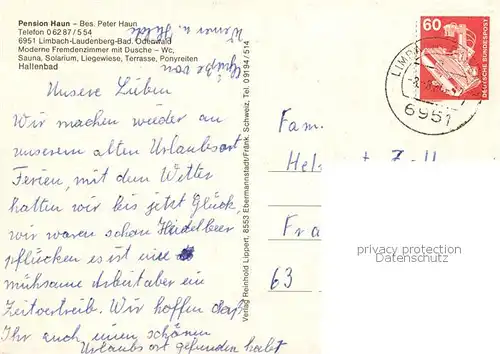 Pension Haun – Bes. Peter Haun
Telefon 0 62 87 / 5 54
6951 Limbach-Laudenberg-Bad. Odenwald
Moderne Fremdenzimmer mit Dusche – Wc,
Sauna, Solarium, Liegewiese, Terrasse, Ponyreiten
Hallenbad
Grüße von
Werner u. Hilde
Unsere Lieben
Wir machen wieder an
unserem alten Urlaubsort
Ferien, mit dem Wetter
hatten wir bis jetzt Glück,
wir waren schon Heidelbeer
pflücken es ist eine
mühsame Arbeit aber ein
Zeitvertreib. Wir hoffen daß
Ihr auch einen schönen
Urlaubsort gefunden habt
Verlag Reinhold Lippert, 8553 Ebermannstadt/Fränk. Schweiz, Tel. 0 91 94 / 514
60
DEUTSCHE BUNDESPOST
6951
Fam.
Hel
Fra
63
privacy protection
AnsichtskartenHandel.com